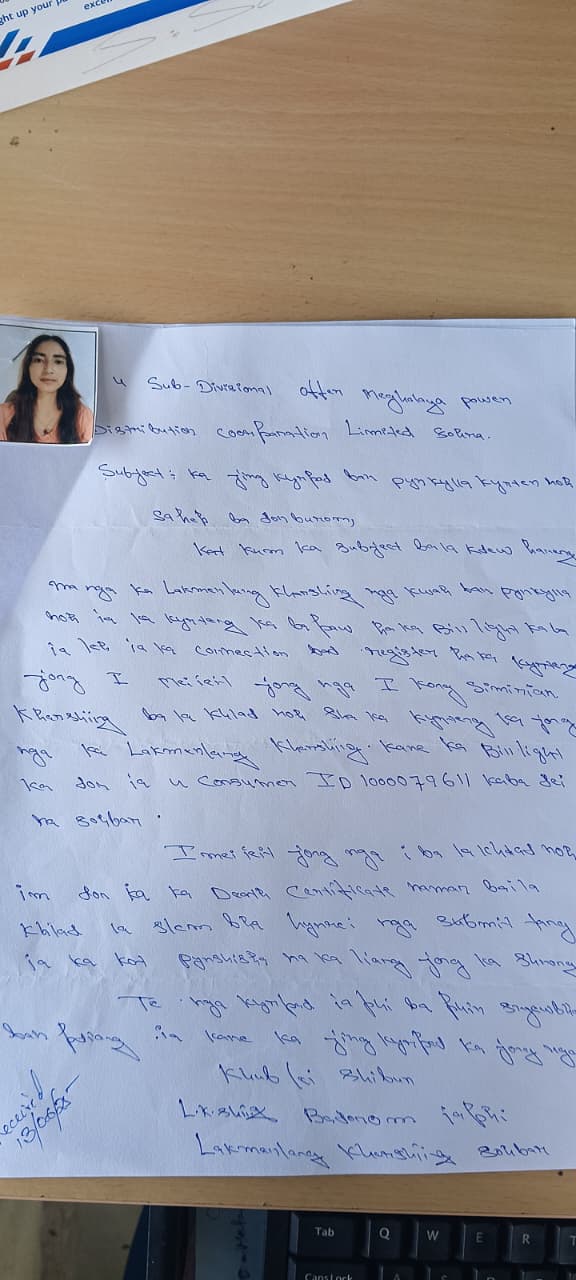 ght up your
excel
U Sub-Divisional offer Meghalaya power
Distribution coorparation Limited Sohra.
Subject: ka jing kyrpad ban pynkylla kyrteng noh
Saheb ba donburom,
Kat kum ka subject bala kdew haneng
ma nga ka Lakmenlang Khonshiing nga kwah ban pynkylla
noh ia ka kyrteng ka ba paw ha ka Bill light kaba
ia lah ia ka connection bad register ha ka kyrteng
jong I meikeit jong nga I kong Simirian
Khonshiing ba la khlad noh sha ka kyrteng ka jong
nga ka Lakmenlang Khonshiing. Kane ka Bill light
ka don ia u Consumer ID 1000079611 kaba dei
na Sohbar.
I meikeit jong nga i ba la khlad noh
im don ia ka Death Certificate namar baila
khlad la slem bha hynrei nga submit tang
ia ka kot pynshisha na ka liang jong ka Shnong
Te nga kyrpad ia phi ba phin sngewbha
ban pdiang ia kane ka jing kyrpad ka jong nga
Khublei Shibun
L.K.Shiig Badonom iaphi
Lakmenlang Khonshiing Sohbar
Received
13/05/25
Tab Q W E R T
CapsLock